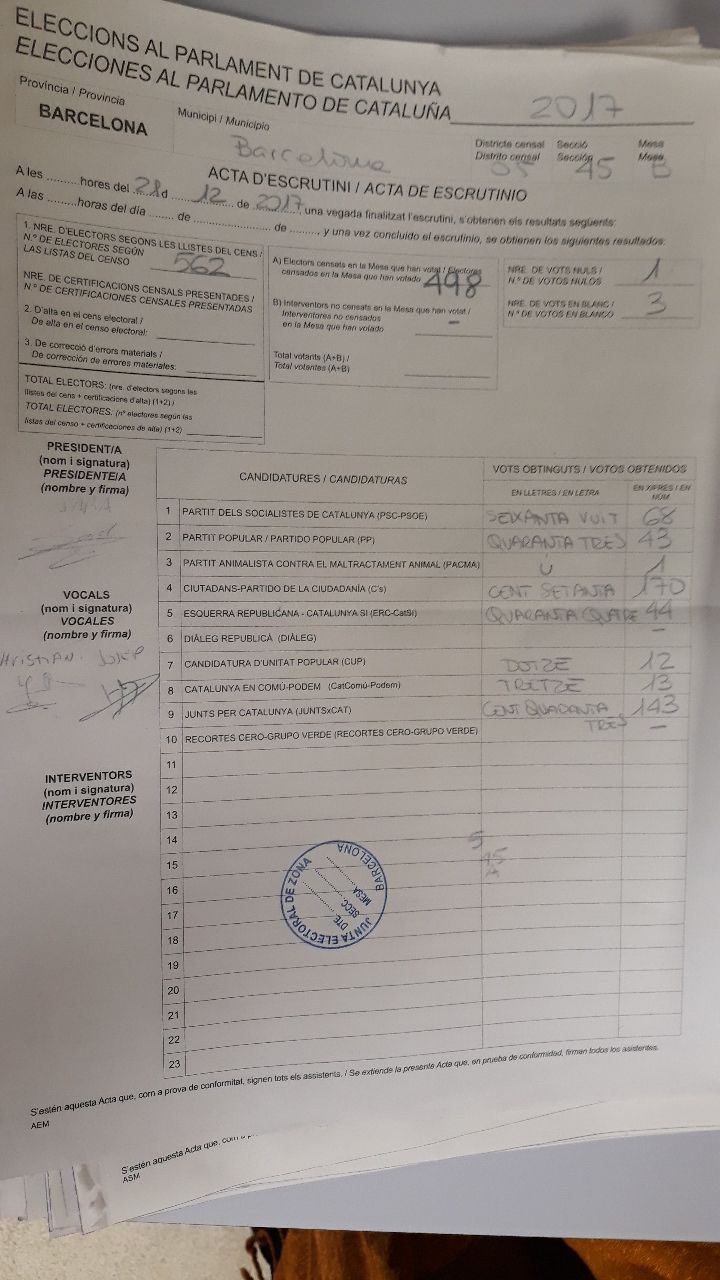 ELECCIONS AL PARLAMENT DE CATALUNYA
ELECCIONES AL PARLAMENTO DE CATALUÑA 2017
Província / Provincia
BARCELONA
Municipi / Municipio
Barcelona
Districte censal Secció Mesa
Distrito censal Sección Mesa
05 45 B
ACTA D'ESCRUTINI / ACTA DE ESCRUTINIO
A les ......... hores del 21 d 12 de 2017, una vegada finalitzat l'escrutini, s'obtenen els resultats següents:
A las .........horas del día ........ de ........................ de ........, y una vez concluido el escrutinio, se obtienen los siguientes resultados:
1. NRE. D'ELECTORS SEGONS LES LLISTES DEL CENS /
N.º DE ELECTORES SEGÚN
LAS LISTAS DEL CENSO 562
NRE. DE CERTIFICACIONS CENSALS PRESENTADES /
Nº DE CERTIFICACIONES CENSALES PRESENTADAS
2. D'alta en el cens electoral /
De alta en el censo electoral:
3. De correcció d'errors materials /
De corrección de errores materiales:
TOTAL ELECTORS: (nre. d'electors segons les
llistes del cens + certificacions d'alta) (1+2) /
TOTAL ELECTORES. (nº electores según las
listas del censo + certificaciones de alta) (1+2)
A) Electors censats en la Mesa que han votat / Electores
censados en la Mesa que han votado 498
B) Interventors no censats en la Mesa que han votat /
Interventores no censados
en la Mesa que han votado –
Total votants (A+B) /
Total votantes (A+B)
NRE. DE VOTS NULS /
Nº DE VOTOS NULOS 1
NRE. DE VOTS EN BLANC /
Nº DE VOTOS EN BLANCO 3
PRESIDENT/A
(nom i signatura)
PRESIDENTE/A
(nombre y firma)
VOCALS
(nom i signatura)
VOCALES
(nombre y firma)
JOSEP
INTERVENTORS
(nom i signatura)
INTERVENTORES
(nombre y firma)
CANDIDATURES / CANDIDATURAS
VOTS OBTINGUTS / VOTOS OBTENIDOS
EN LLETRES / EN LETRA
EN XIFRES / EN NÚM.
1 PARTIT DELS SOCIALISTES DE CATALUNYA (PSC-PSOE) SEIXANTA VUIT 68
2 PARTIT POPULAR / PARTIDO POPULAR (PP) QUARANTA TRES 43
3 PARTIT ANIMALISTA CONTRA EL MALTRACTAMENT ANIMAL (PACMA) U 1
4 CIUTADANS-PARTIDO DE LA CIUDADANÍA (C's) CENT SETANTA 170
5 ESQUERRA REPUBLICANA - CATALUNYA SI (ERC-CatSí) QUARANTA QUATRE 44
6 DIÀLEG REPUBLICÀ (DIÀLEG) –
7 CANDIDATURA D'UNITAT POPULAR (CUP) DOTZE 12
8 CATALUNYA EN COMÚ-PODEM (CatComú-Podem) TRETZE 13
9 JUNTS PER CATALUNYA (JUNTSxCAT) CENT QUARANTA TRES 143
10 RECORTES CERO-GRUPO VERDE (RECORTES CERO-GRUPO VERDE) –
11
12
13
14
15
16
17
18
19
20
21
22
23
5
45
A
JUNTA ELECTORAL DE ZONA
BARCELONA
DTE. ........
SECC. ........
MESA ........
S'estén aquesta Acta que, com a prova de conformitat, signen tots els assistents. / Se extiende la presente Acta que, en prueba de conformidad, firman todos los asistentes.
AEM
S'estén aquesta Acta que, com a
ASM